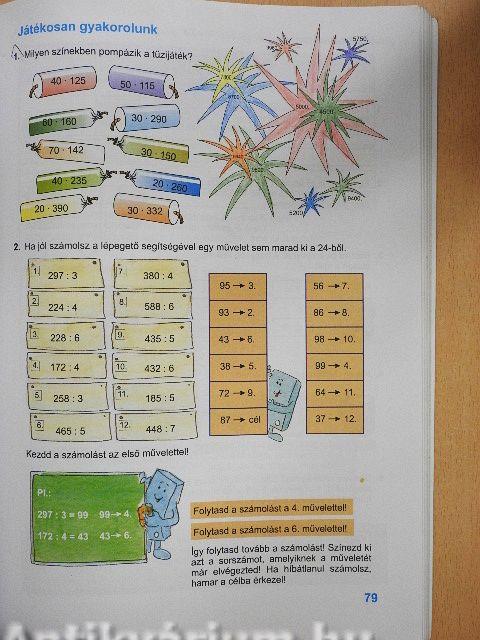 Játékosan gyakorolunk
1. Milyen színekben pompázik a tűzijáték?
40 · 125
50 · 115
60 · 160
30 · 290
70 · 142
30 · 150
40 · 235
20 · 260
20 · 390
30 · 332
5750,
5000,
5200,
9400,
2. Ha jól számolsz a lépegető segítségével egy művelet sem marad ki a 24-ből.
1. 297 : 3
2. 224 : 4
3. 228 : 6
4. 172 : 4
5. 258 : 3
6. 465 : 5
7. 380 : 4
8. 588 : 6
9. 435 : 5
10. 432 : 6
11. 185 : 5
12. 448 : 7
95 → 3.
93 → 2.
43 → 6.
38 → 5.
72 → 9.
87 → cél
56 → 7.
86 → 8.
98 → 10.
99 → 4.
64 → 11.
37 → 12.
Kezdd a számolást az első művelettel!
Pl.:
297 : 3 = 99 99 → 4.
172 : 4 = 43 43 → 6.
Folytasd a számolást a 4. művelettel!
Folytasd a számolást a 6. művelettel!
Így folytasd tovább a számolást! Színezd ki
azt a sorszámot, amelyiknek a műveletét
már elvégezted! Ha hibátlanul számolsz,
hamar a célba érkezel!
79
Antikvárium.hu